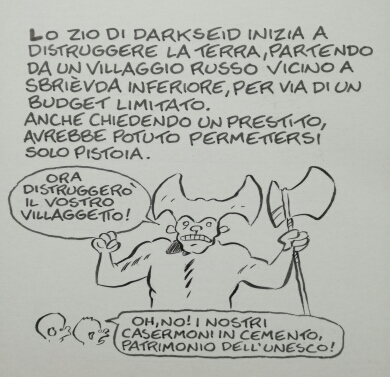 LO ZIO DI DARKSEID INIZIA A
DISTRUGGERE LA TERRA, PARTENDO
DA UN VILLAGGIO RUSSO VICINO A
SBRIÈVDA INFERIORE, PER VIA DI UN
BUDGET LIMITATO.
ANCHE CHIEDENDO UN PRESTITO,
AVREBBE POTUTO PERMETTERSI
SOLO PISTOIA.
ORA
DISTRUGGERÒ
IL VOSTRO
VILLAGGETTO!
OH, NO! I NOSTRI
CASERMONI IN CEMENTO,
PATRIMONIO DELL'UNESCO!